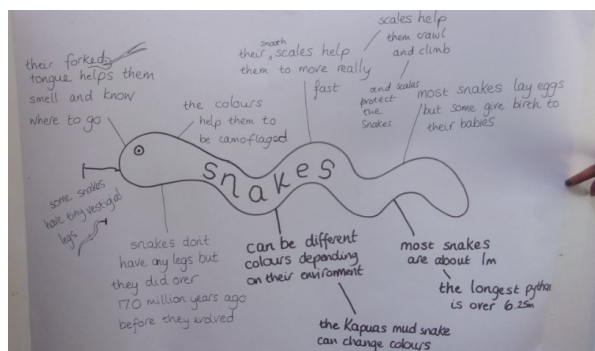 their forked
tongue helps them
smell and know
where to go
the colours
help them to
be camoflaged
smooth
their scales help
them to move really
fast
scales help
them crawl
and climb
and scales
protect
the
snakes
most snakes lay eggs
but some give birth to
their babies
snakes
some snakes
have tiny vestigial
legs
snakes don't
have any legs but
they did over
70 million years ago
before they evolved
can be different
colours depending
on their environment
the Kapuas mud snake
can change colours
most snakes
are about 1m
the longest python
is over 6.25m